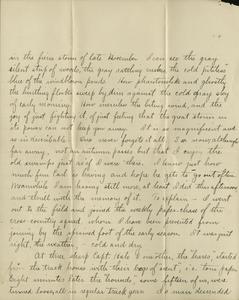 in the fierce storm of late November I can see the gray
silent strip of woods, the gray rattling rushes the cold pitiless
blue of the windblown ponds. How phantomlike and ghostly
the hurtling flocks sweep by dim against the cold gray sky
of early morning. How merciless the biting wind, and the
joy of just fighting it, of just feeling that the great storm in
its power can not keep you away. It is so magnificent and
so inevitable. One never forgets it all. I so now, although
far away, not an autumn passes but that I see the
old swamps just as if I were there. I know just how
much fun Carl is having and hope he gets to "go out" often.
Meanwhile I am having still more, at least I did this afternoon
and thrill with the memory of it. To explain - I went
out to the field and joined the weekly paper chase of the
cross country squad whom I have been prevented from
joining by the sprained foot of the early season. It was just
right, the weather, - cold and dry.
At three sharp Capt. Hale & another, the "hares", started
for the track house with their bags of scent, i.e. torn paper.
Eight minutes later the hounds, some fifteen of us, were
turned loose, all in regular track gear. I a man descended